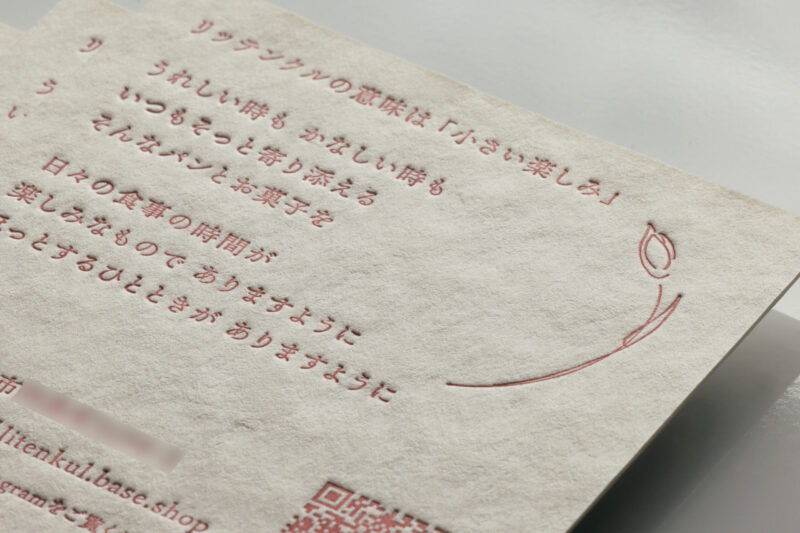 リッテンクルの意味は「小さい楽しみ」
うれしい時も かなしい時も
いつもそっと寄り添える
そんなパンとお菓子を
日々の食事の時間が
楽しみなもので ありますように
ほっとするひとときが ありますように
市
litenkul.base.shop
gramをご覧く
リ
う
い